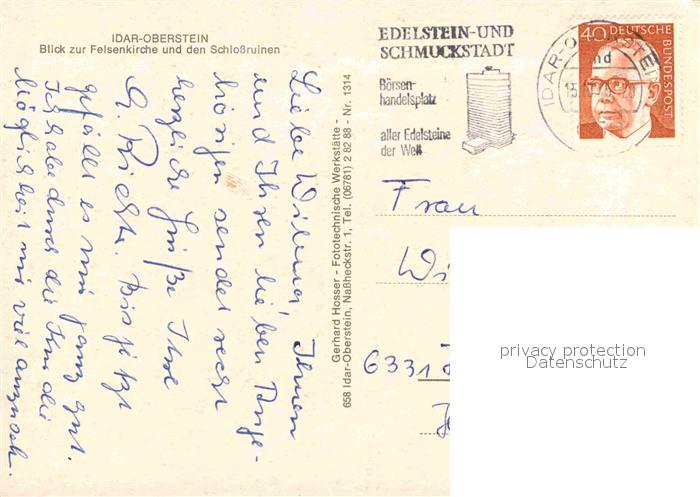 IDAR-OBERSTEIN
Blick zur Felsenkirche und den Schloßruinen
Liebe Wilma, Ihnen
und Ihren lieben Ange-
hörigen sendet recht
herzliche Grüße Ihre
Bis jetzt
gefällt es mir ganz gut.
Ich habe durch die
Möglichkeit mir viel anzuseh.
Gerhard Hosser - Fototechnische Werkstätte -
658 Idar-Oberstein, Naßheckstr. 1, Tel. (06781) 2 82 88 - Nr. 1314
EDELSTEIN-UND
SCHMUCKSTADT
Börsen-
handelsplatz
aller Edelsteine
der Welt
IDAR-OBERSTEIN
40 DEUTSCHE
BUNDESPOST
Frau
Wi
6331
privacy protection
Datenschutz